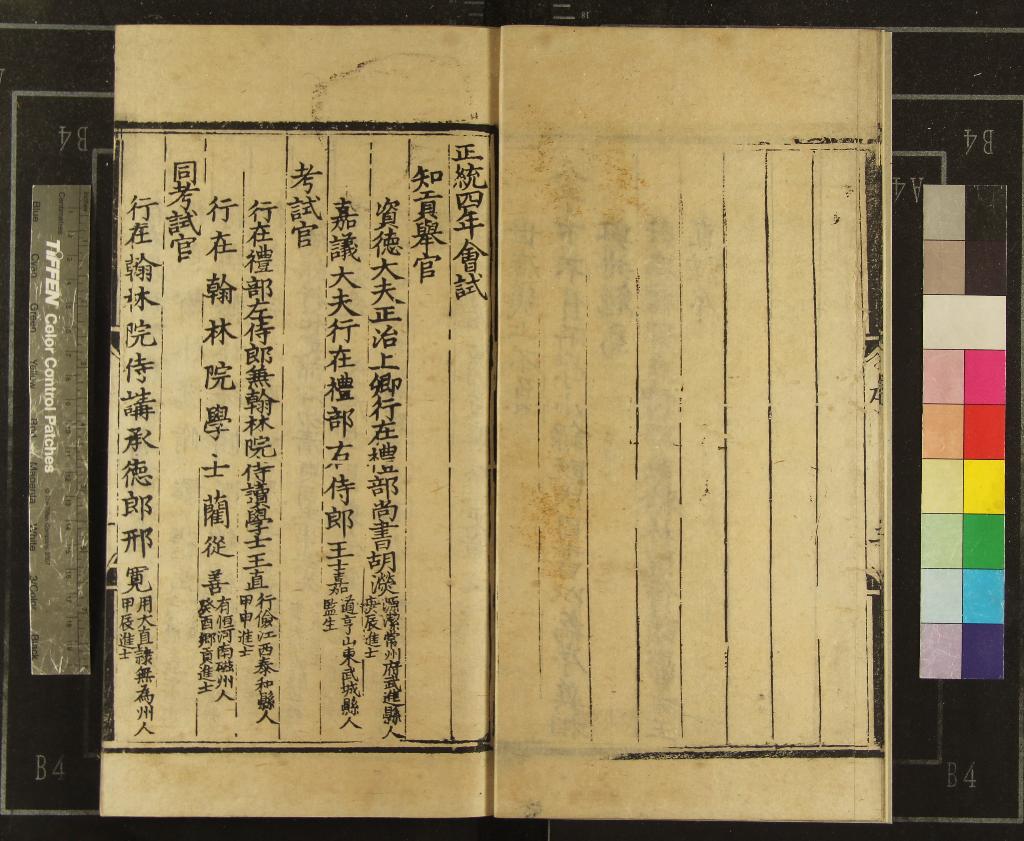 正統四年會試
知貢舉官
資德大夫正治上卿行在禮部尚書胡濙
源潔常州府武進縣人
庚辰進士
嘉議大夫行在禮部右侍郎王士嘉
道亨山東武城縣人
監生
考試官
行在禮部左侍郎兼翰林院侍讀學士王直
行儉江西泰和縣人
甲申進士
行在翰林院學士藺從善
有恒河南磁州人
癸酉鄉貢進士
同考試官
行在翰林院侍講承德郎邢寬
用大直隸無為州人
甲辰進士
TIFFEN Color Control Patches
B4
B4
B4
B4
A4